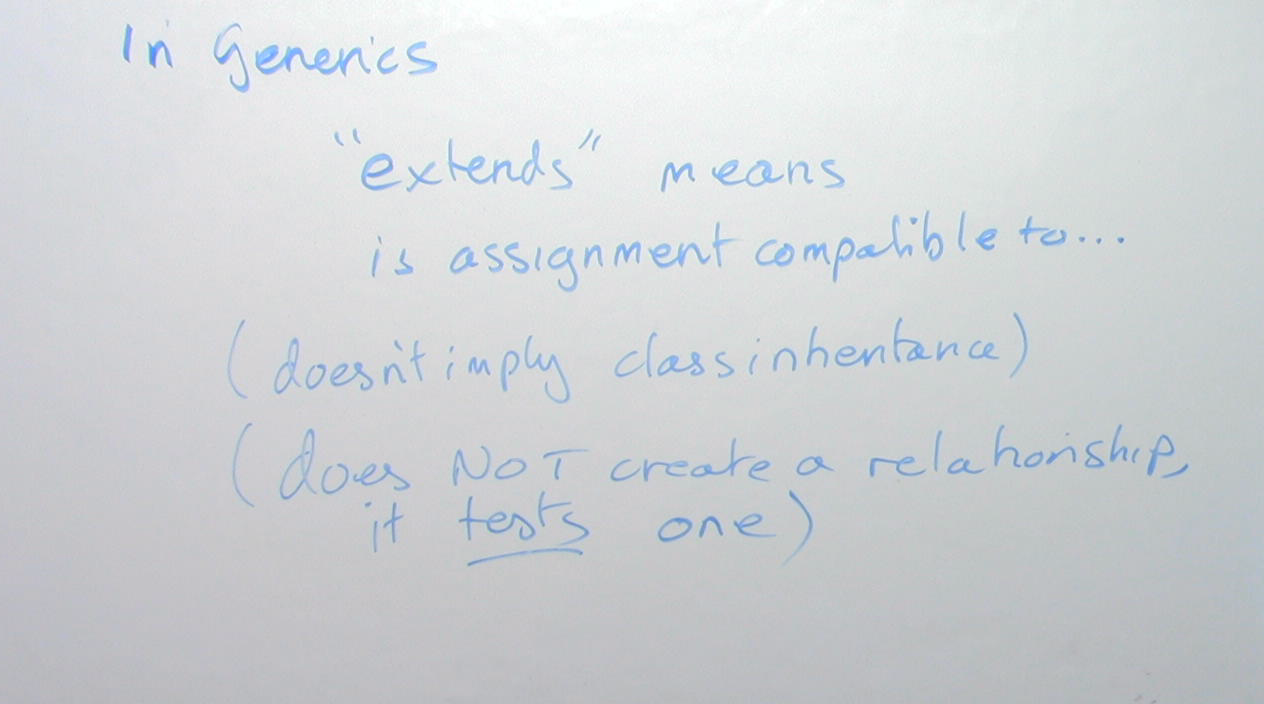 In Generics
"extends" means
is assignment compatible to...
(doesn't imply class inheritance)
(does NOT create a relationship,
it tests one)